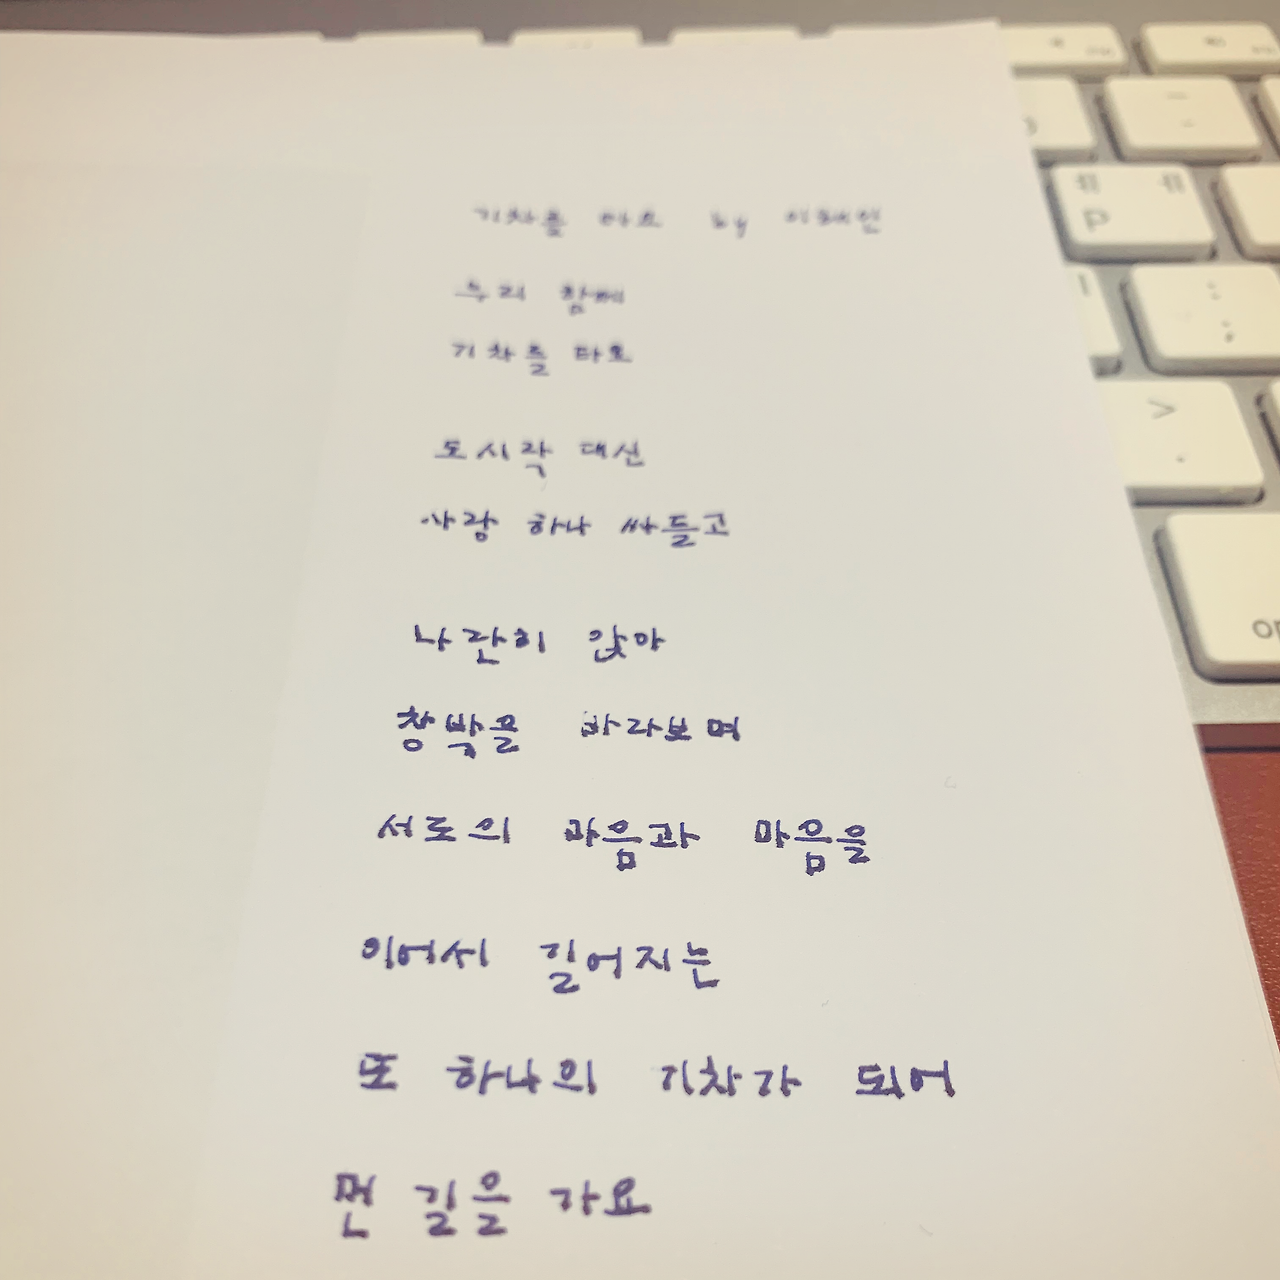 기차를 타요 by 이해인
우리 함께
기차를 타요
도시락 대신
사랑 하나 싸들고
나란히 앉아
창밖을 바라보며
서로의 마음과 마음을
이어서 길어지는
또 하나의 기차가 되어
먼 길을 가요
P
>
.